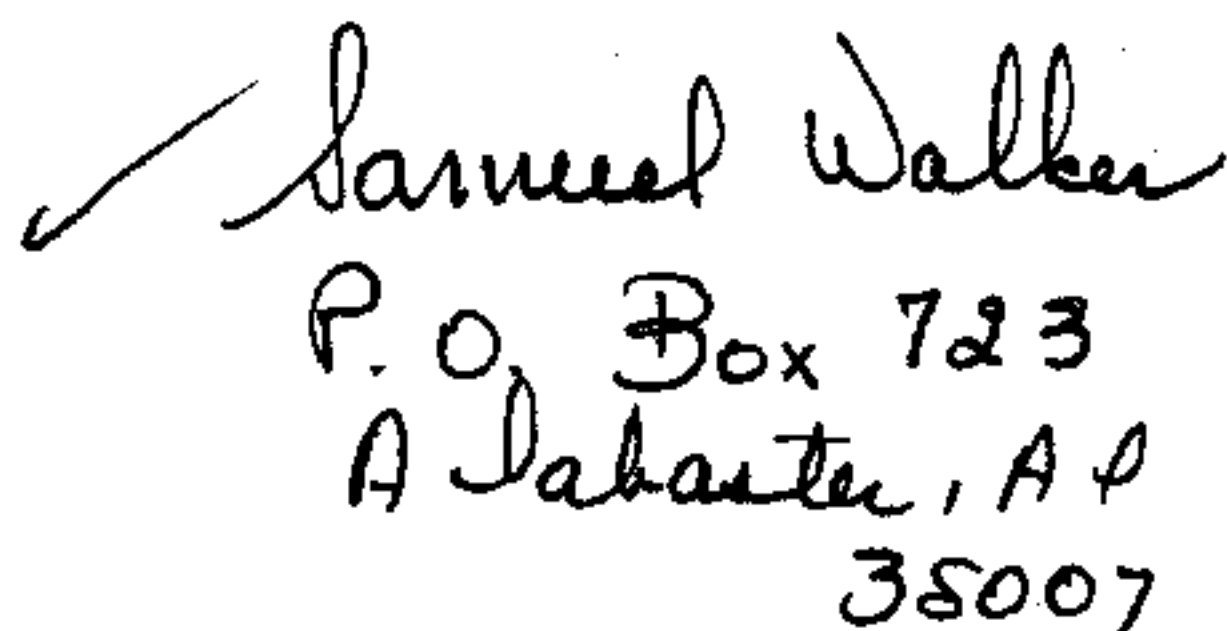 Samuel Walker
P.O. Box 723
Alabaster, Al
35007